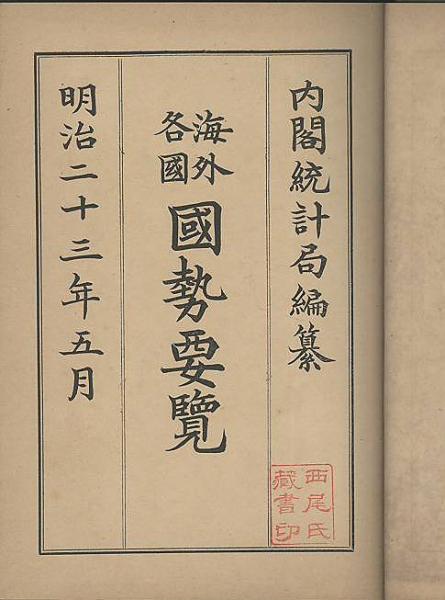 内閣統計局編纂
海外
各國
國勢要覽
明治二十三年五月
西尾氏
藏書印